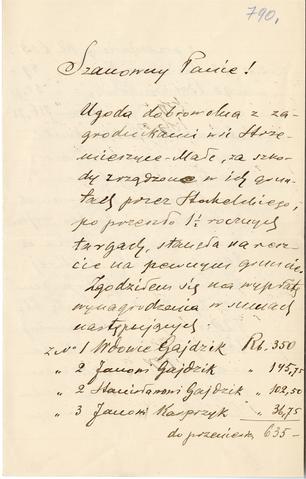 790.
Szanowny Panie!
Ugoda dobrowolna z za-
grodnikami wsi Strze-
mieszyce-Małe, za szko-
dy zrządzone w ich grun-
tach przez
po przeszło 1½ rocznych
targach, stanęła na resz-
cie na pewnym gruncie.
Zgodziłem się na wypłatę
wynagrodzenia w sumach
następujących:
z No 1 Wdowie Gajdzik Rb. 350
" 2 Janowi Gajdzik " 145,75
" 2 Stanisławowi Gajdzik " 102,50
" 3 Janowi Kasprzyk " 36,75
do przeniesienia 635 –